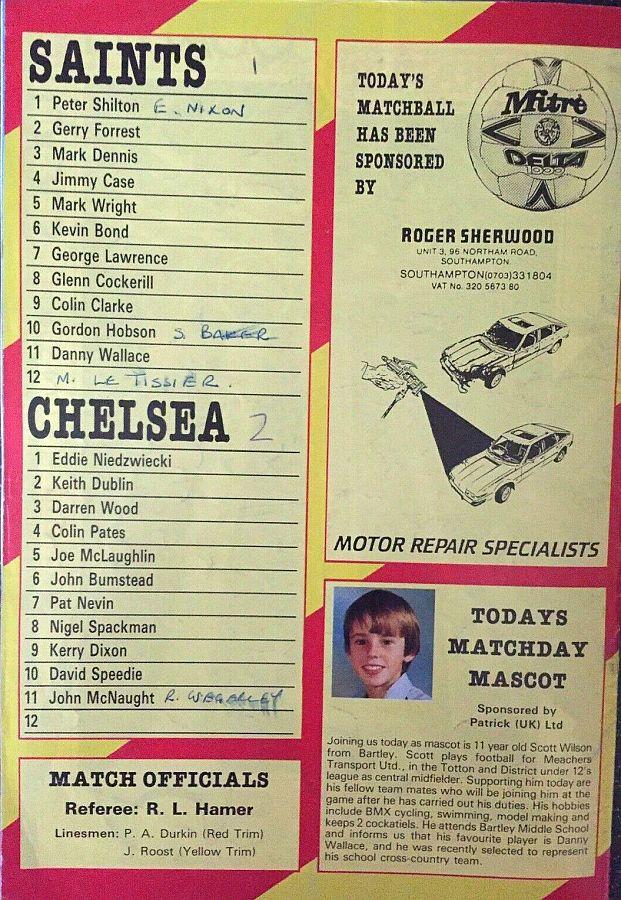 SAINTS 1
1 Peter Shilton E. NIXON
2 Gerry Forrest
3 Mark Dennis
4 Jimmy Case
5 Mark Wright
6 Kevin Bond
7 George Lawrence
8 Glenn Cockerill
9 Colin Clarke
10 Gordon Hobson S. BAKER
11 Danny Wallace
12 M. LE TISSIER.
CHELSEA 2
1 Eddie Niedzwiecki
2 Keith Dublin
3 Darren Wood
4 Colin Pates
5 Joe McLaughlin
6 John Bumstead
7 Pat Nevin
8 Nigel Spackman
9 Kerry Dixon
10 David Speedie
11 John McNaught R. WEGERLEY
12
MATCH OFFICIALS
Referee: R. L. Hamer
Linesmen: P. A. Durkin (Red Trim)
J. Roost (Yellow Trim)
TODAY'S
MATCHBALL
HAS BEEN
SPONSORED
BY
Mitre
DELTA
1000
ROGER SHERWOOD
UNIT 3, 96 NORTHAM ROAD,
SOUTHAMPTON.
SOUTHAMPTON(0703)331804
VAT No. 320 5673 80
MOTOR REPAIR SPECIALISTS
TODAYS
MATCHDAY
MASCOT
Sponsored by
Patrick (UK) Ltd
Joining us today as mascot is 11 year old Scott Wilson
from Bartley. Scott plays football for Meachers
Transport Utd., in the Totton and District under 12's
league as central midfielder. Supporting him today are
his fellow team mates who will be joining him at the
game after he has carried out his duties. His hobbies
include BMX cycling, swimming, model making and
keeps 2 cockatiels. He attends Bartley Middle School
and informs us that his favourite player is Danny
Wallace, and he was recently selected to represent
his school cross-country team.